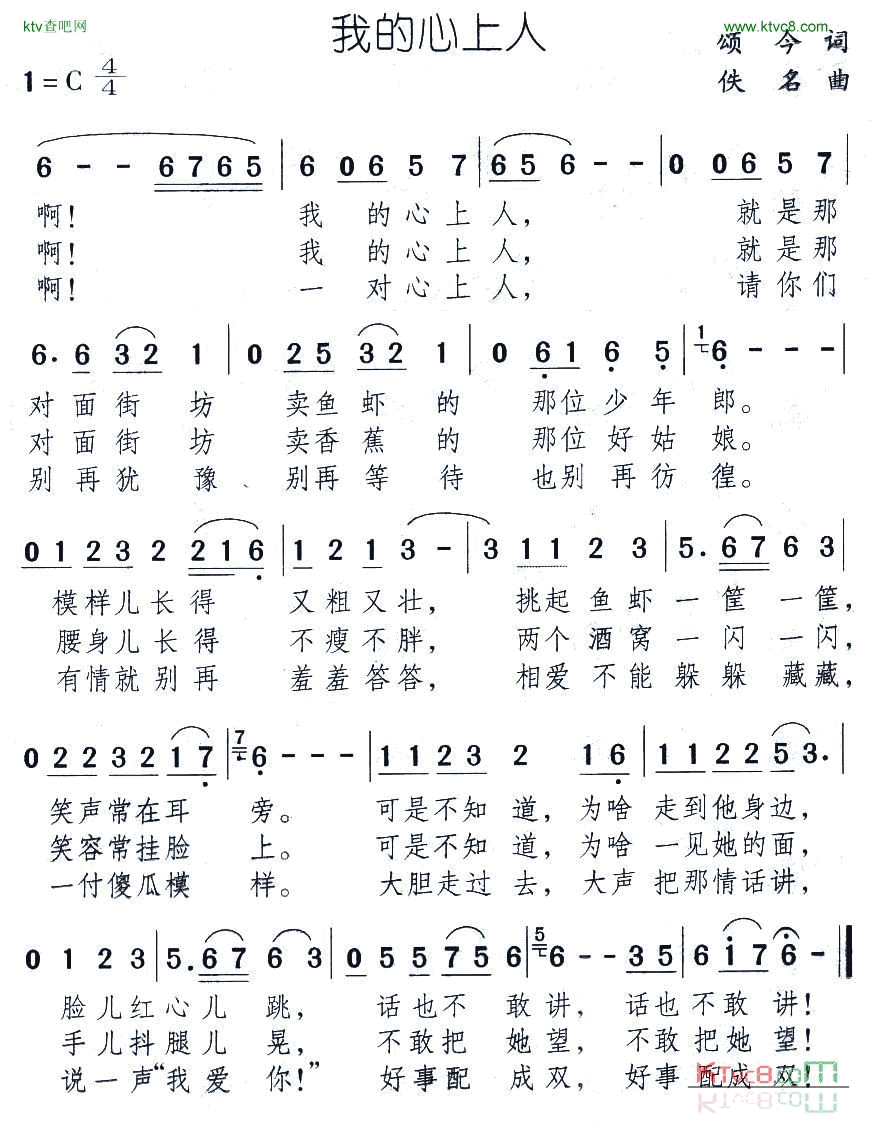 ktv查吧网
www.ktvc8.com
我的心上人
颂今词
1=C 4/4
佚名曲
6 - - 6 7 6 5 | 6 0 6 5 7 | 6 5 6 - - | 0 0 6 5 7 |
啊! 我的心上人, 就是那
啊! 我的心上人, 就是那
啊! 一对心上人, 请你们
6. 6 3 2 1 | 0 2 5 3 2 1 | 0 6 1 6 5 | 1 6 - - - |
对面街坊 卖鱼虾的 那位少年郎。
对面街坊 卖香蕉的 那位好姑娘。
别再犹豫、 别再等待 也别再彷徨。
0 1 2 3 2 2 1 6 | 1 2 1 3 - | 3 1 1 2 3 | 5. 6 7 6 3 |
模样儿长得 又粗又壮, 挑起鱼虾一筐一筐,
腰身儿长得 不瘦不胖, 两个酒窝一闪一闪,
有情就别再 羞羞答答, 相爱不能躲躲藏藏,
0 2 2 3 2 1 7 | 7 6 - - - | 1 1 2 3 2 1 6 | 1 1 2 2 5 3. |
笑声常在耳旁。 可是不知道, 为啥走到他身边,
笑容常挂脸上。 可是不知道, 为啥一见她的面,
一付傻瓜模样。 大胆走过去, 大声把那情话讲,
0 1 2 3 | 5. 6 7 6 3 | 0 5 5 7 5 6 | 5 6 - - 3 5 | 6 i 7 6 - ‖
脸儿红心儿跳, 话也不敢讲, 话也不敢讲!
手儿抖腿儿晃, 不敢把她望, 不敢把她望!
说一声“我爱你!” 好事配成双, 好事配成双!
KTvc8.com